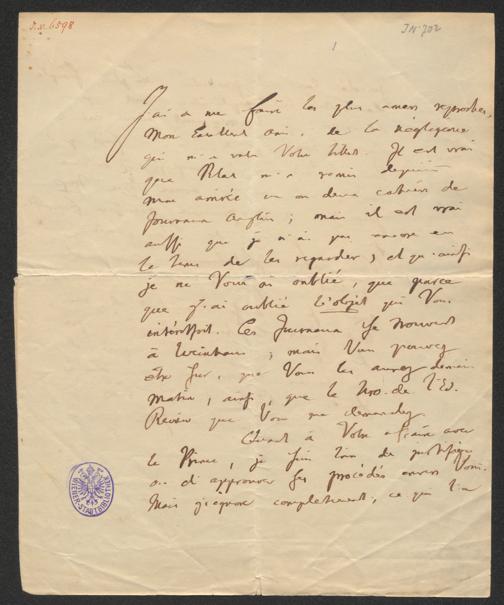 J.N. 6598
J.N. 702
1
J'ai à me faire les plus amers reproches,
Mon Excellent Ami, de la négligence
qui m'a valu Votre billet. Il est vrai
que Pilat m'a remis depuis
mon arrivée un ou deux cahiers de
Journaux Anglais; mais il est vrai
aussi que je n'ai pas encore eu
le tems de les regarder; et qu'ainsi
je ne Vous ai oublié, que parce
que j'ai oublié l'objet qui Vous
intéressoit. Ces Journaux se trouvent
à Weinhaus; mais Vous pouvez
être sûr, que Vous les aurez demain
matin, ainsi que le Nro. de l'Ed.
Review que Vous me demandez.
Quant à Votre affaire avec
le Prince, je suis loin de justifier
ou d'approuver ses procédés envers Vous.
Mais j'ignore complètement, ce qui l'a
WIENER STADTBIBLIOTHEK